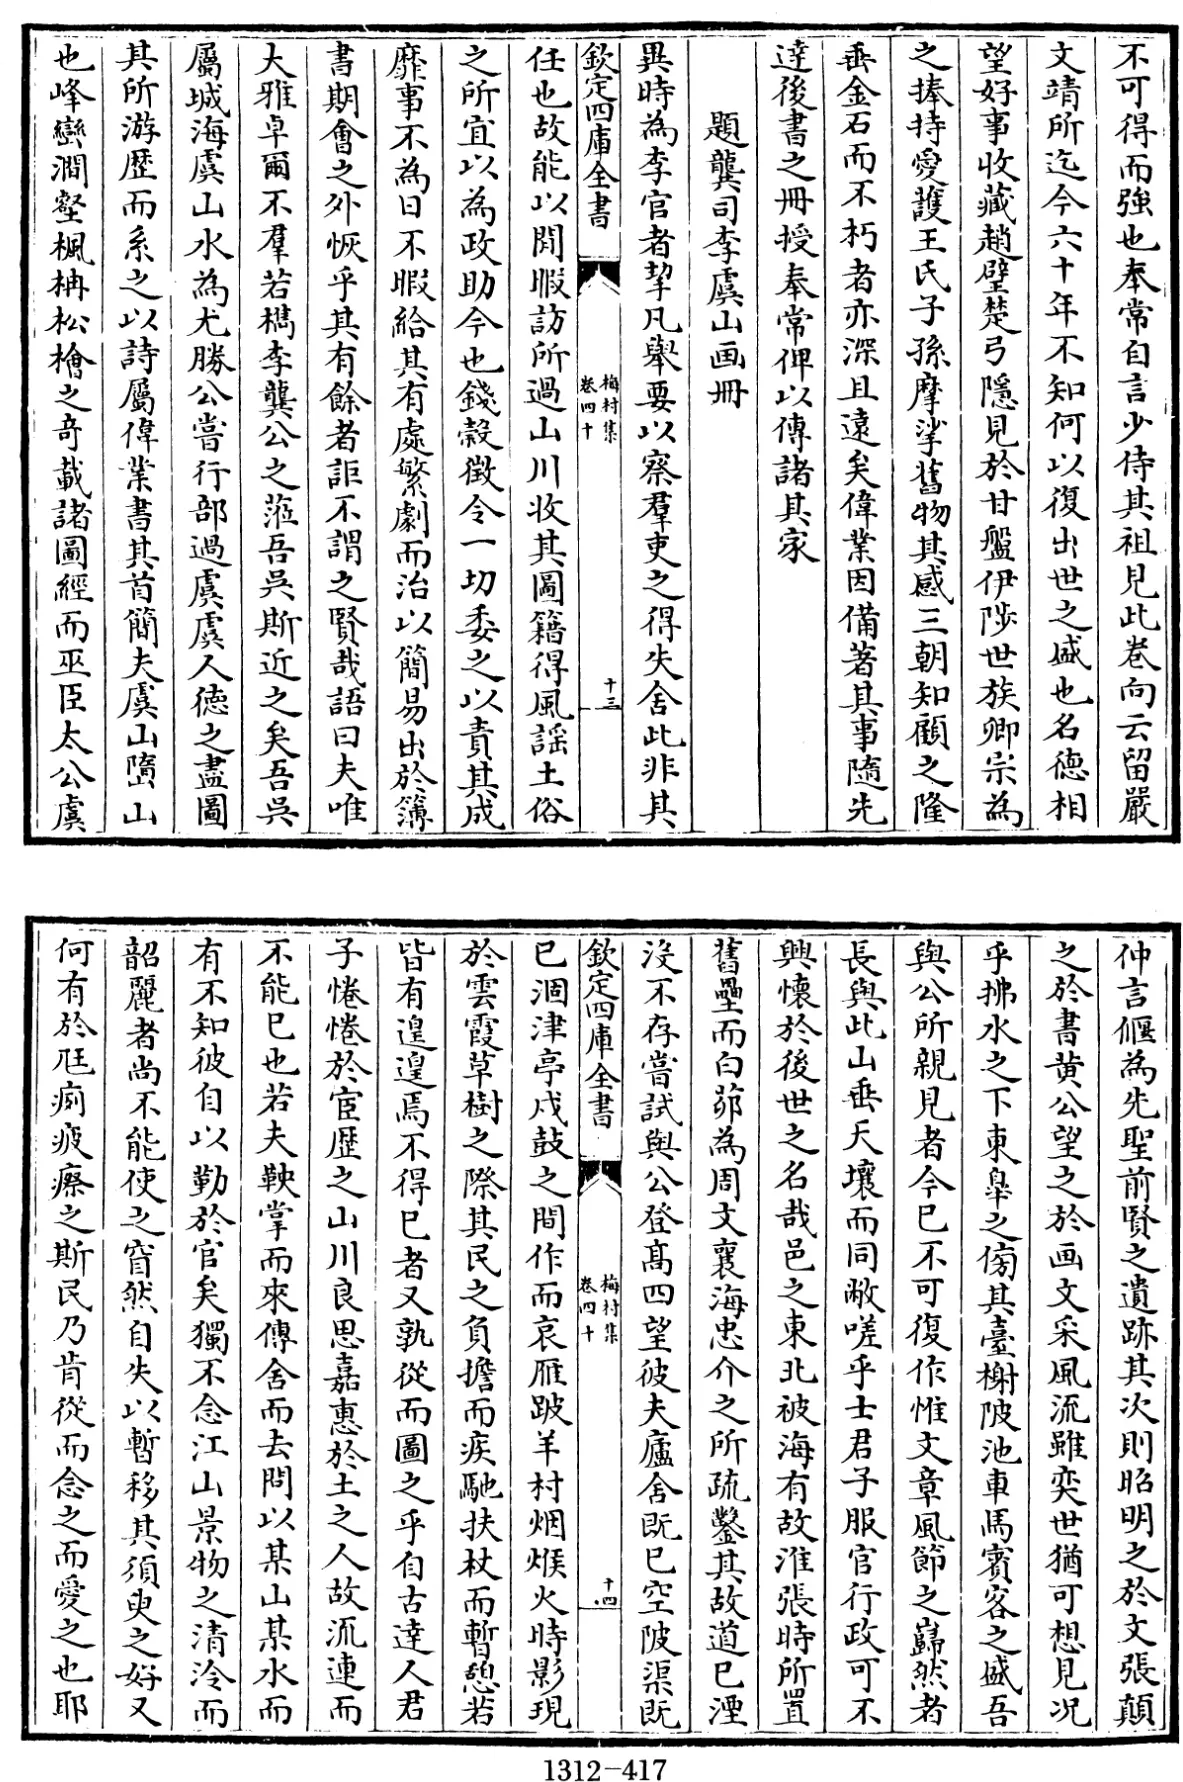 不可得而強也奉常自言少侍其祖見此卷向云留嚴
文靖所迄今六十年不知何以復出世之盛也名德相
望好事收藏趙璧楚弓隱見於甘盤伊陟世族卿宗為
之捧持愛護王氏子孫摩挲舊物其感三朝知顧之隆
垂金石而不朽者亦深且遠矣偉業因備著其事隨先
達後書之冊授奉常俾以傳諸其家
題龔司李虞山画冊
異時為李官者挈凡舉要以察羣吏之得失舍此非其
欽定四庫全書
梅村集
卷四十
十三
任也故能以閒暇訪所過山川收其圖籍得風謡土俗
之所宜以為政助今也錢穀徵令一切委之以責其成
靡事不為日不暇給其有處繁劇而治以簡易出於簿
書期會之外恢乎其有餘者詎不謂之賢哉語曰夫唯
大雅卓爾不羣若檇李龔公之蒞吾吳斯近之矣吾吳
屬城海虞山水為尤勝公嘗行部過虞虞人德之盡圖
其所游歴而系之以詩屬偉業書其首簡夫虞山墮山
也峰巒澗壑楓柟松檜之奇載諸圖經而巫臣太公虞
仲言偃為先聖前賢之遺跡其次則昭明之於文張顛
之於書黄公望之於画文采風流雖奕世猶可想見况
乎拂水之下東臯之傍其臺榭陂池車馬賓客之盛吾
與公所親見者今已不可復作惟文章風節之巋然者
長與此山垂天壤而同敝嗟乎士君子服官行政可不
興懷於後世之名哉邑之東北被海有故淮張時所置
舊壘而白茆為周文襄海忠介之所疏鑿其故道已湮
沒不存嘗試與公登髙四望彼夫廬舍既已空陂渠既
欽定四庫全書
梅村集
卷四十
十四
已涸津亭戍鼓之間作而哀雁跛羊村烟堠火時影現
於雲霞草樹之際其民之負擔而疾馳扶杖而暫憩若
皆有遑遑焉不得已者又孰從而圖之乎自古達人君
子惓惓於宦歴之山川良思嘉惠於土之人故流連而
不能已也若夫鞅掌而來傳舍而去問以某山某水而
有不知彼自以勤於官矣獨不念江山景物之清泠而
韶麗者尚不能使之窅然自失以暫移其須臾之好又
何有於尫痌疲瘵之斯民乃肯從而念之而愛之也耶
1312-417